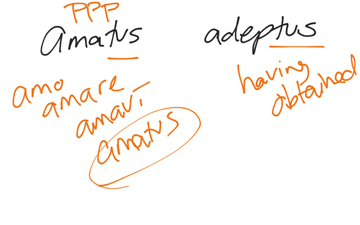 PPP
Amatus
adeptus
amo
amare
amavi
amatus
having
obtained